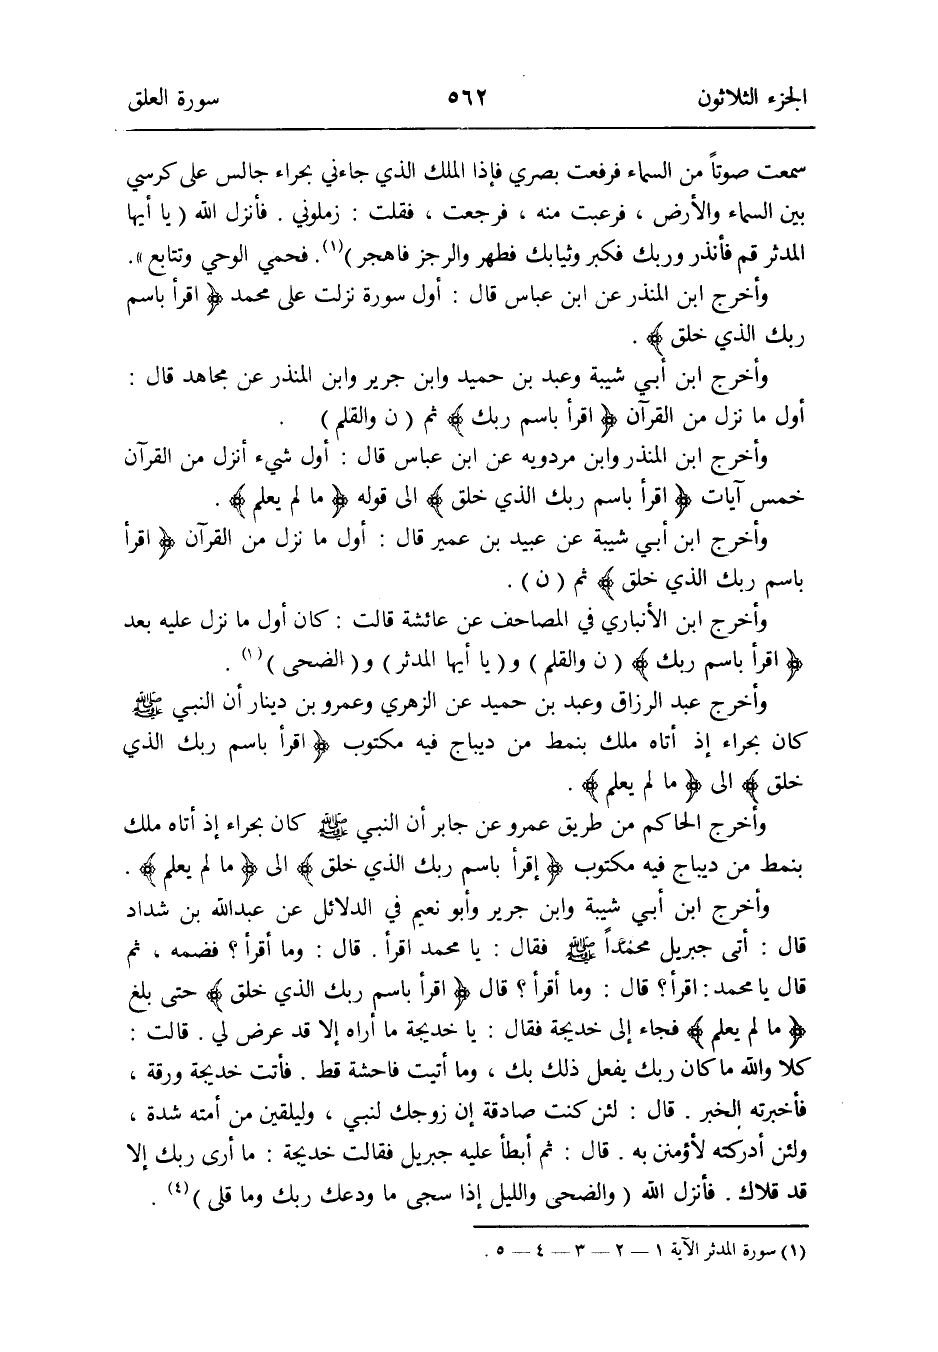 الجزء الثلاثون ٥٦٢ سورة العلق
سمعت صوتاً من السماء فرفعت بصري فإذا الملك الذي جاءني بحراء جالس على كرسي
بين السماء والأرض ، فرعبت منه ، فرجعت ، فقلت : زملوني . فأنزل الله ( يا أيها
المدثر قم فأنذر وربك فكبر وثيابك فطهر والرجز فاهجر )(١). فحمي الوحي وتتابع ».
وأخرج ابن المنذر عن ابن عباس قال : أول سورة نزلت على محمد ﴿ اقرأ باسم
ربك الذي خلق ﴾ .
وأخرج ابن أبي شيبة وعبد بن حميد وابن جرير وابن المنذر عن مجاهد قال :
أول ما نزل من القرآن ﴿ اقرأ باسم ربك ﴾ ثم ( ن والقلم ) .
وأخرج ابن المنذر وابن مردويه عن ابن عباس قال : أول شيء أنزل من القرآن
خمس آيات ﴿ اقرأ باسم ربك الذي خلق ﴾ الى قوله ﴿ ما لم يعلم ﴾ .
وأخرج ابن أبي شيبة عن عبيد بن عمير قال : أول ما نزل من القرآن ﴿ اقرأ
باسم ربك الذي خلق ﴾ ثم ( ن ) .
وأخرج ابن الأنباري في المصاحف عن عائشة قالت : كان أول ما نزل عليه بعد
﴿ اقرأ باسم ربك ﴾ ( ن والقلم ) و( يا أيها المدثر ) و( الضحى )(١) .
وأخرج عبد الرزاق وعبد بن حميد عن الزهري وعمرو بن دينار أن النبي ﷺ
كان بحراء إذ أتاه ملك بنمط من ديباج فيه مكتوب ﴿ اقرأ باسم ربك الذي
خلق ﴾ الى ﴿ ما لم يعلم ﴾ .
وأخرج الحاكم من طريق عمرو عن جابر أن النبي ﷺ كان بحراء إذ أتاه ملك
بنمط من ديباج فيه مكتوب ﴿ إقرأ باسم ربك الذي خلق ﴾ الى ﴿ ما لم يعلم ﴾ .
وأخرج ابن أبي شيبة وابن جرير وأبو نعيم في الدلائل عن عبدالله بن شداد
قال : أتى جبريل محمداً ﷺ فقال : يا محمد اقرأ . قال : وما أقرأ ؟ فضمه ، ثم
قال يا محمد : اقرأ؟ قال : وما أقرأ ؟ قال ﴿ اقرأ باسم ربك الذي خلق ﴾ حتى بلغ
﴿ ما لم يعلم ﴾ فجاء إلى خديجة فقال : يا خديجة ما أراه إلا قد عرض لي . قالت :
كلا والله ما كان ربك يفعل ذلك بك ، وما أتيت فاحشة قط . فأتت خديجة ورقة ،
فأخبرته الخبر . قال : لئن كنت صادقة إن زوجك لنبي ، وليلقين من أمته شدة ،
ولئن أدركته لأؤمنن به . قال : ثم أبطأ عليه جبريل فقالت خديجة : ما أرى ربك إلا
قد قلاك . فأنزل الله ( والضحى والليل إذا سجى ما ودعك ربك وما قلى )(٤) .
(١) سورة المدثر الآية ١ — ٢ — ٣ — ٤ — ٥ .